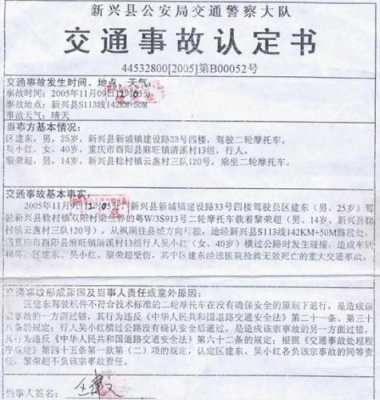 新兴县公安局交通警察大队
交通事故认定书
44532800[2005]第B00052号
交通事故发生时间、地点、天气:
事故时间:2005年11月09日
事故地点:新兴县S113线142KM-50M
事故天气:晴天
当事方基本情况:
区建东,男,25岁,新兴县新城镇建设路33号四楼,驾驶二轮摩托车。
吴小红,女,40岁,重庆市酉阳县麻旺镇清溪村13组,行人。
黎荣超,男,14岁,新兴县稔村镇云莲村三队120号,乘坐二轮摩托车。
交通事故基本事实:
2005年11月,新兴县新城镇建设路33号四楼驾驶员区建东(男,25岁)驾
驶新兴县稔村镇的粤W/3S913号二轮摩托车载着黎荣超(男,14岁,新兴县稔
村镇云莲村三队120号),从枫洞往县城方向行驶,途经新兴县S113线142KM-50M路段处,
遇重庆市酉阳县麻旺镇清溪村13组行人吴小红(女,40岁)横过公路时发生碰撞,造成车辆
损坏,区建东、吴小红、黎荣超受伤,其中区建东经送医院抢救无效死亡的重大交通事故。
交通事故形成原因及当事人责任或意外原因:
区建东驾驶机件不符合技术标准的二轮摩托车在没有确保安全的原则下通行,是造成该
事故的一方面过错,其行为违反《中华人民共和国道路交通安全法》第二十一条、第三十
八条的规定;行人吴小红横过公路没有确认安全后通过,是造成该宗事故的另一方面过错,
其行为违反《中华人民共和国道路交通安全法》第六十二条的规定;根据《交通事故处理程
序规定》第四十五条第一款第(二)项的规定,认定区建东、吴小红各负该宗事故的同等责
任,黎荣超不负该事故责任。
当事人签名: